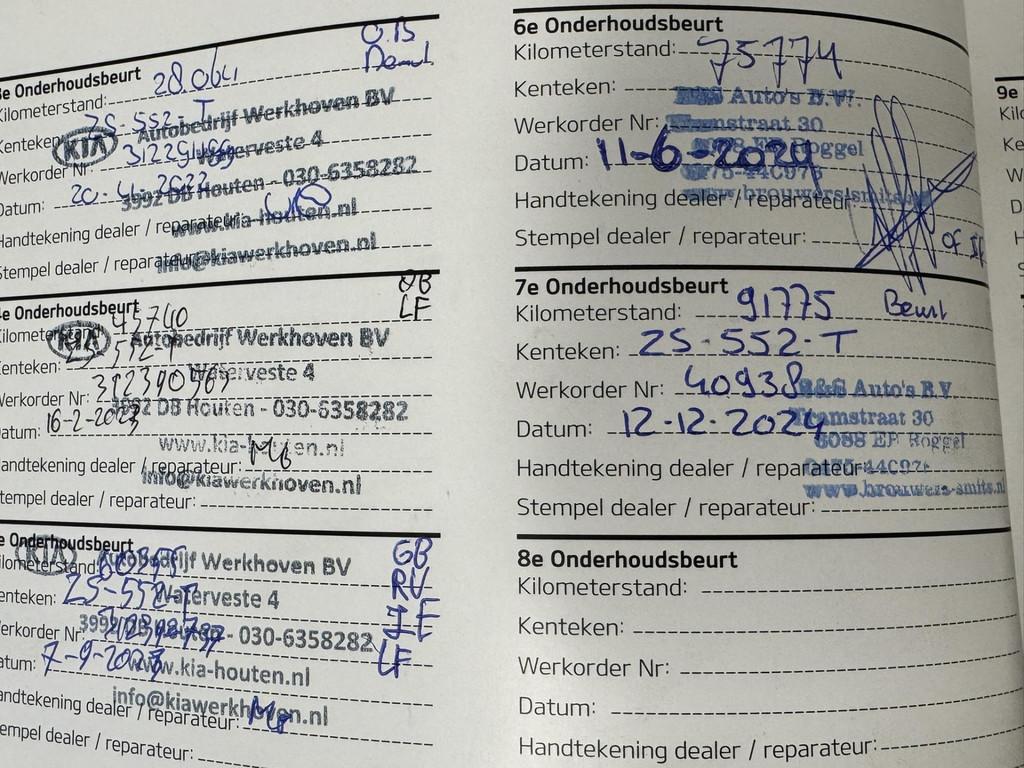 e Onderhoudsbeurt
Kilometerstand: 28.064
O.B
Kenteken: ZS-552-T
KIA
Autobedrijf Werkhoven BV
Werkorder Nr:
Waterveste 4
Datum: 20-4-2022
3992 DB Houten - 030-6358282
Handtekening dealer / reparateur:
www.kia-houten.nl
Stempel dealer / reparateur:
info@kiawerkhoven.nl
e Onderhoudsbeurt
OB
LF
Kilometerstand: 43740
KIA
Autobedrijf Werkhoven BV
Kenteken: ZS-552-T
Waterveste 4
Werkorder Nr:
3992 DB Houten - 030-6358282
Datum: 16-2-2023
www.kia-houten.nl
Handtekening dealer / reparateur:
info@kiawerkhoven.nl
Stempel dealer / reparateur:
e Onderhoudsbeurt
KIA
Kilometerstand:
Autobedrijf Werkhoven BV
GB
RV
Kenteken: ZS-552-T
Waterveste 4
Werkorder Nr:
3992 DB Houten - 030-6358282
LF
Datum: 7-9-2023
www.kia-houten.nl
info@kiawerkhoven.nl
Handtekening dealer / reparateur:
Stempel dealer / reparateur:
6e Onderhoudsbeurt
Kilometerstand: 75774
Kenteken:
B&S Auto's B.V.
Werkorder Nr:
Tramstraat 30
Datum: 11-6-2024
6088 EP Roggel
Handtekening dealer / reparateur:
www.brouwers-smits.nl
Stempel dealer / reparateur:
7e Onderhoudsbeurt
Kilometerstand: 91775
Beurt
Kenteken: ZS-552-T
Werkorder Nr: 40938
B&S Auto's B.V.
Datum: 12-12-2024
Tramstraat 30
6088 EP Roggel
Handtekening dealer / reparateur:
www.brouwers-smits.nl
Stempel dealer / reparateur:
8e Onderhoudsbeurt
Kilometerstand:
Kenteken:
Werkorder Nr:
Datum:
Handtekening dealer / reparateur:
9e